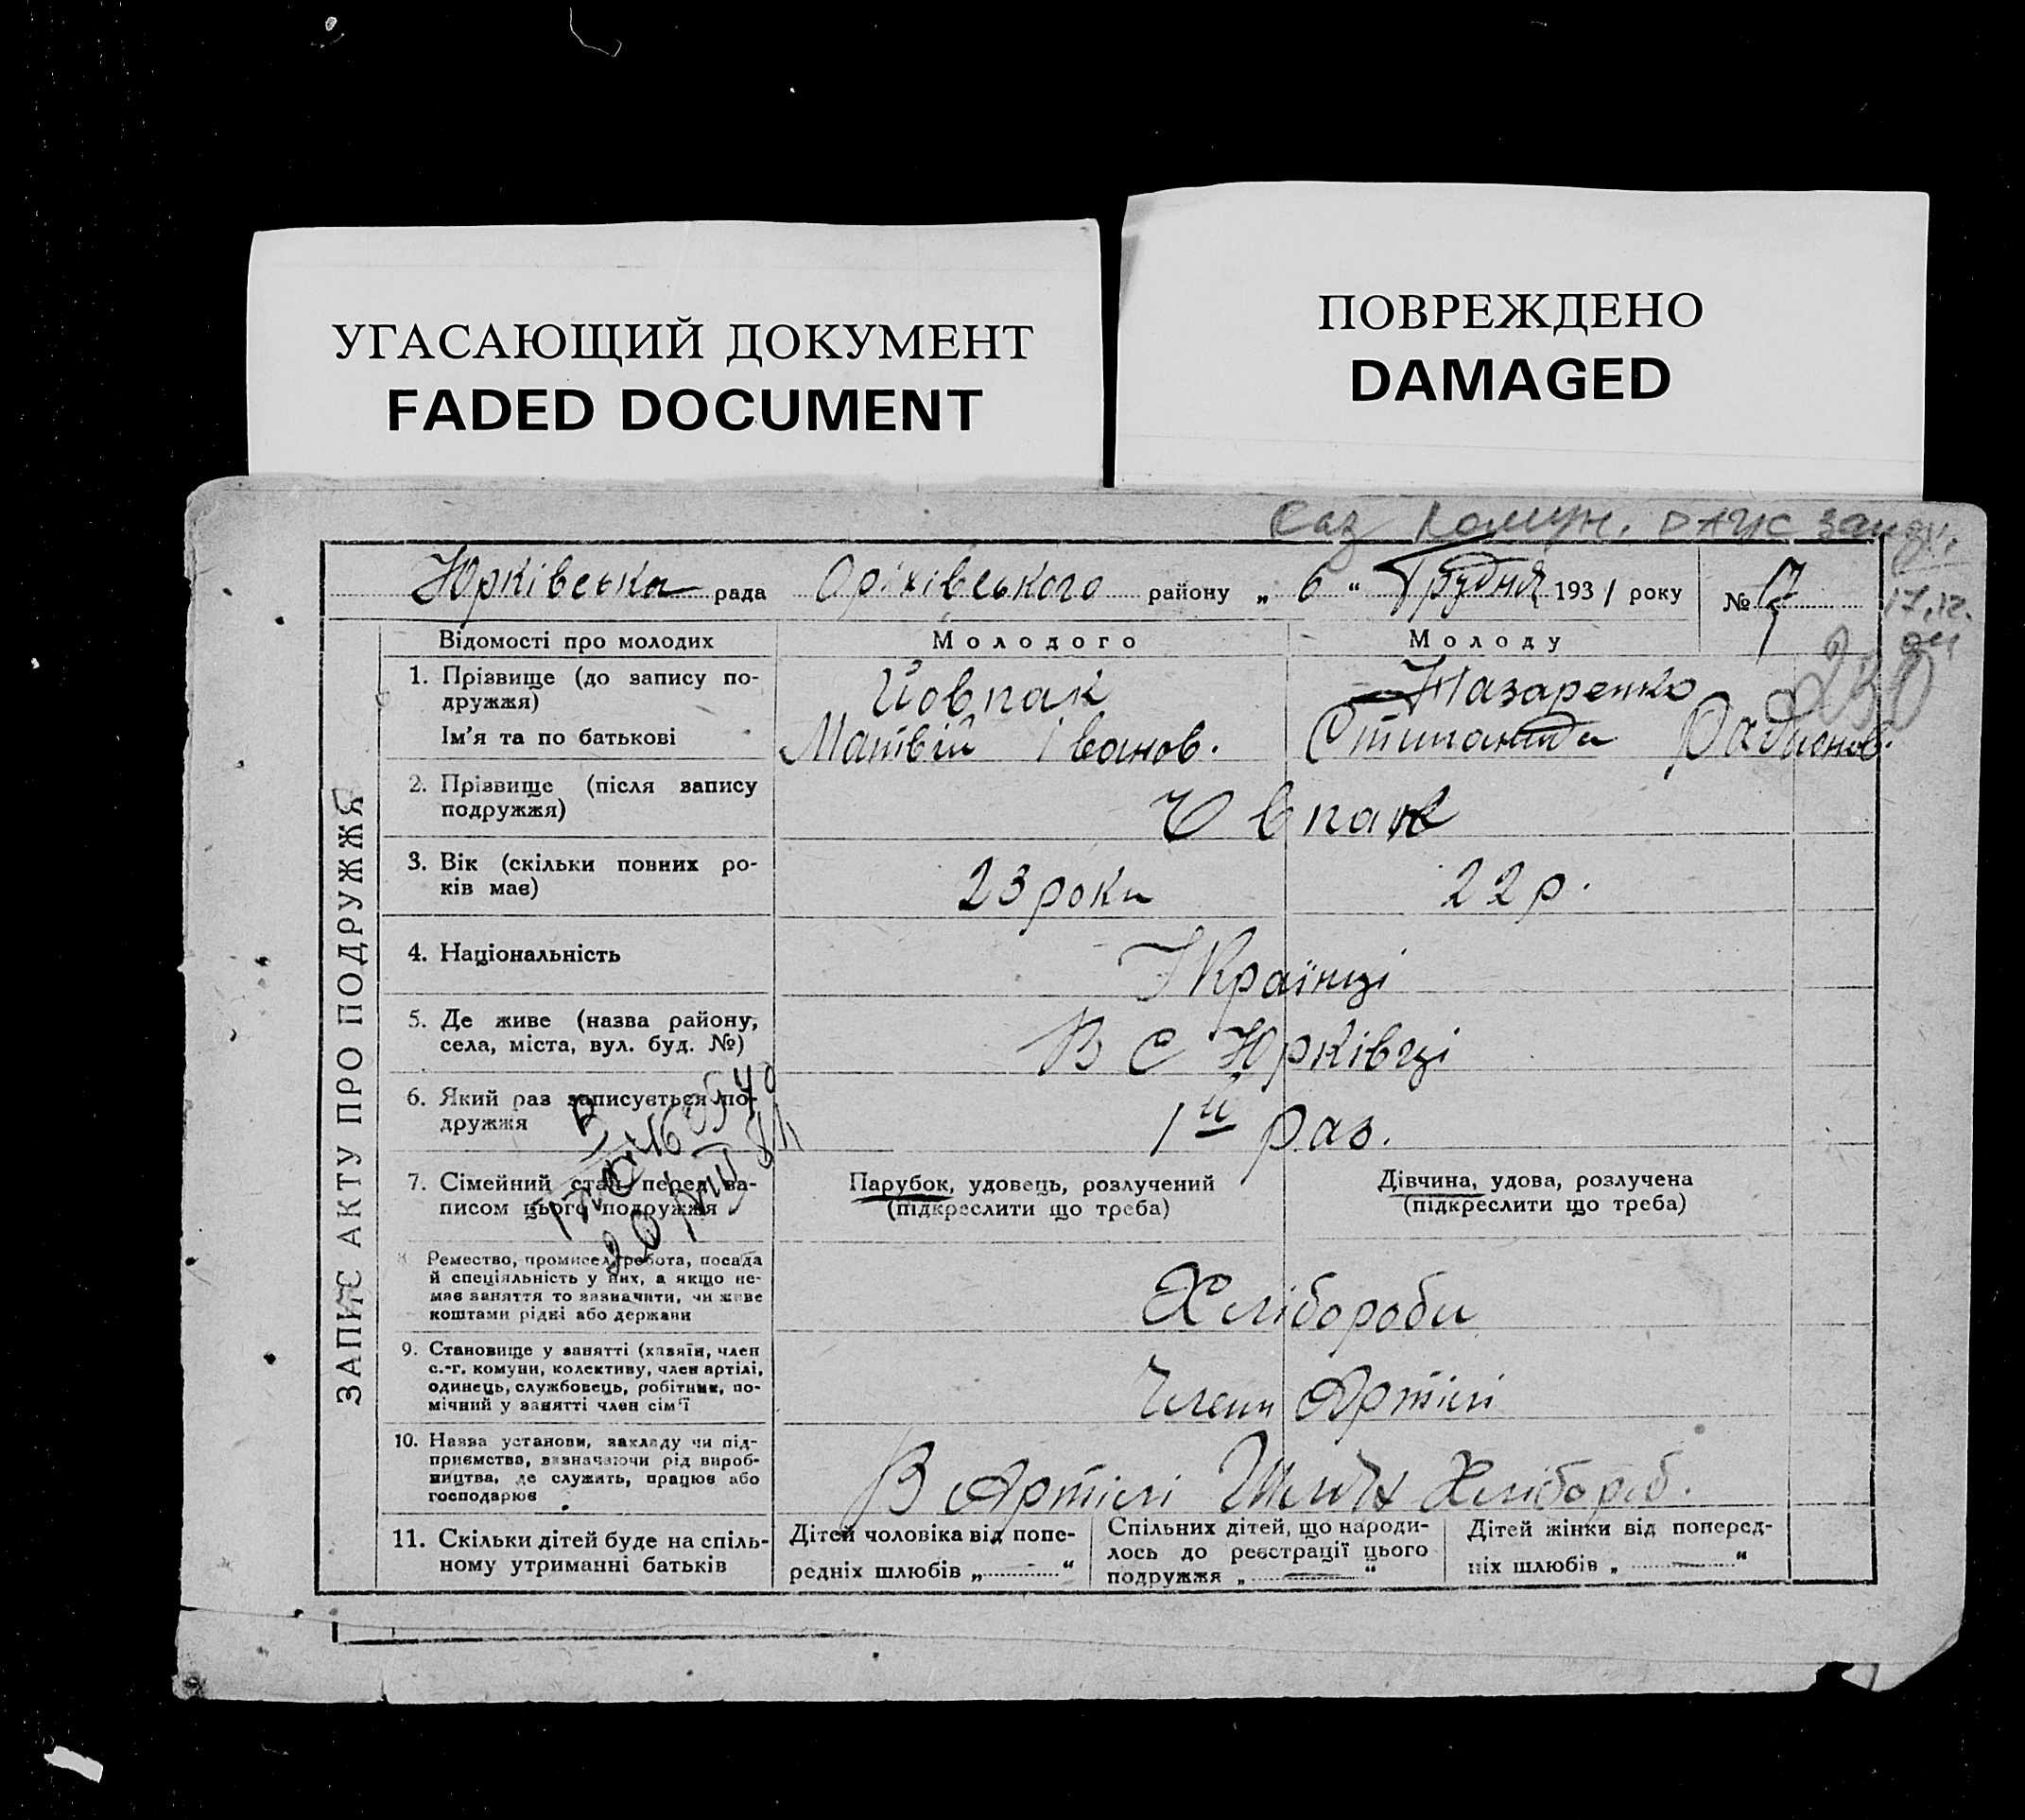 УГАСАЮЩИЙ ДОКУМЕНТ
FADED DOCUMENT
ПОВРЕЖДЕНО
DAMAGED
Юрківська рада Оріхівського району „ 6 “ Грудня 1931 року № 17
17.12.
230
ЗАПИС АКТУ ПРО ПОДРУЖЖЯ
Відомості про молодих Молодого Молоду
1. Прізвище (до запису по-
дружжя) Йовпак Назаренко
Ім’я та по батькові Матвій Іванов. Радионов.
2. Прізвище (після запису
подружжя)
3. Вік (скільки повних ро-
ків має) 23 роки 22 р.
4. Національність Українці
5. Де живе (назва району,
села, міста, вул. буд. №) В С Юрківці
6. Який раз записується по-
дружжя 1й раз.
7. Сімейний стан перед за-
писом цього подружжя
Парубок, удовець, розлучений
(підкреслити що треба)
Дівчина, удова, розлучена
(підкреслити що треба)
Ремество, промисел, робота, посада
й спеціяльність у них, а якщо не-
має заняття то зазначити, чи живе
коштами рідні або держави
Хлібороби
9. Становище у занятті (хазяїн, член
с.-г. комуни, колективу, член артілі,
одинець, службовець, робітник, по-
мічний у занятті член сім‘ї
Члени Артілі
10. Назва установи, закладу чи під-
приємства, зазначаючи рід вироб-
ництва, де служить, працює або
господарює
В Артілі Шлях Хлібороб.
11. Скільки дітей буде на спіль-
ному утриманні батьків
Дітей чоловіка від попе-
редніх шлюбів „ — “
Спільних дітей, що народи-
лось до реєстрації цього
подружжя „ — “
Дітей жінки від поперед-
ніх шлюбів „ — “